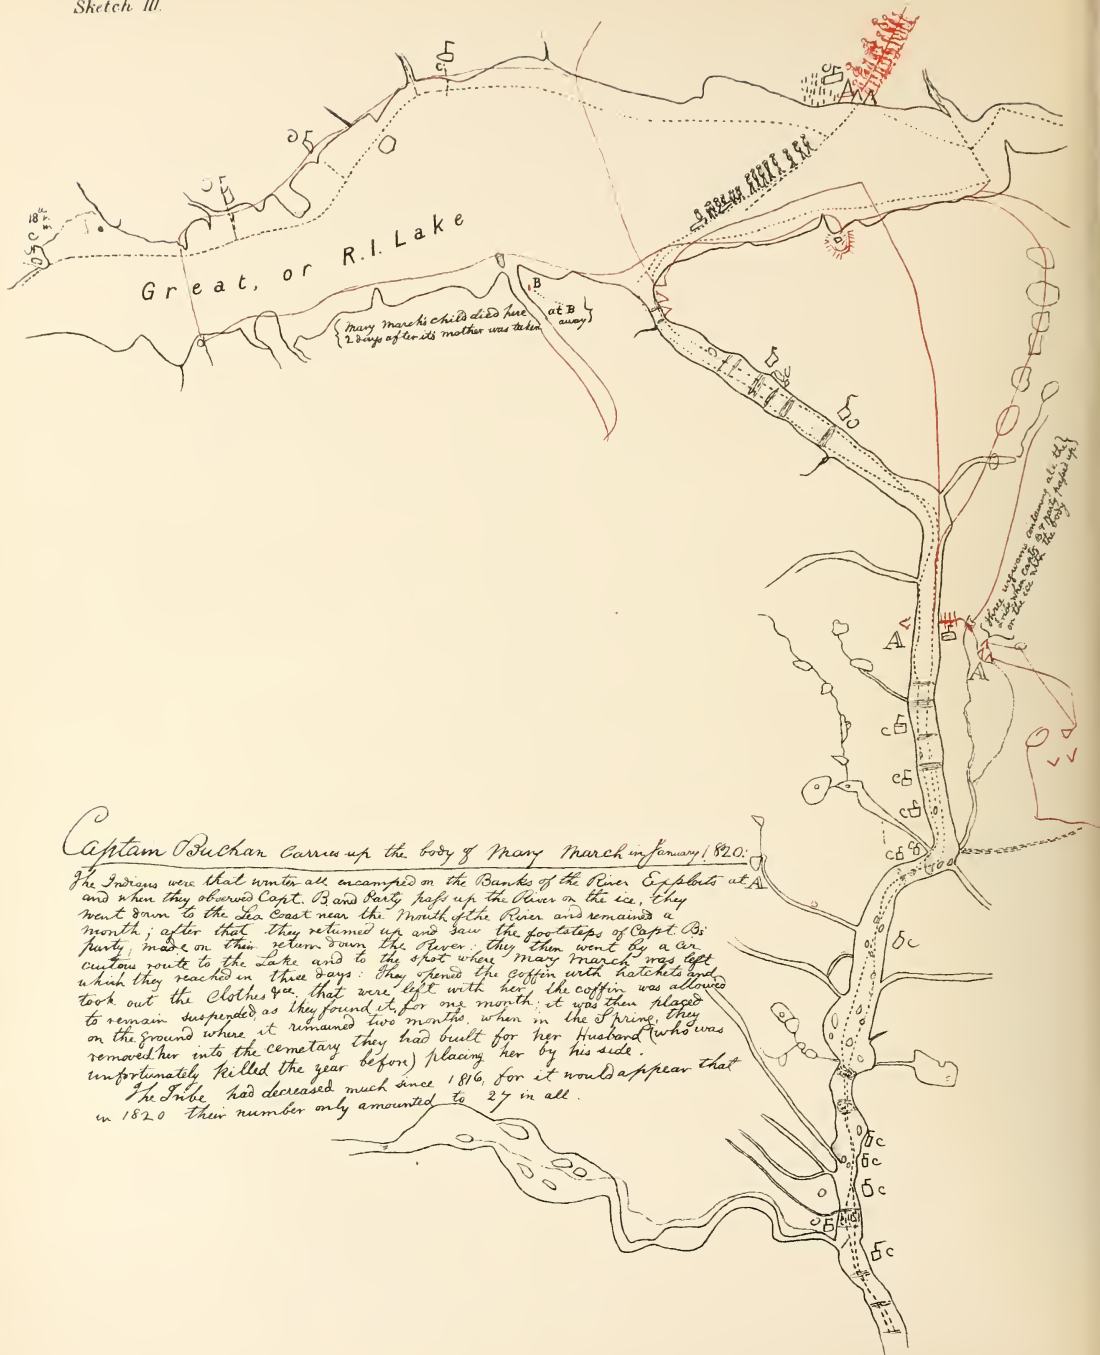 Sketch III.
Great, or R.I. Lake
B
{Mary March's child died here at B
2 days after it's mother was taken away}
three wigwams containing all the
Inds when Capt. B & party passed up
on the ice with the body
A
A
A
Captain Buchan Carries up the body of Mary March in January 1820:
The Indians were that winter all encamped on the Banks of the River Exploits at A
and when they observed Capt. B. and Party pass up the River on the ice, they
went down to the Sea Coast near the Mouth of the River and remained a
month; after that they returned up and saw the footsteps of Capt. B:
party, made on their return down the River: they then went by a cir
cuitous route to the Lake and to the spot where Mary March was left
which they reached in three days: They opened the coffin with hatchets and
took out the Clothes &ce, that were left with her, the coffin was allowed
to remain suspended, as they found it, for one month: it was then placed
on the ground where it remained two months, when in the Spring, they
removed her into the cemetary they had built for her Husband (who was
unfortunately killed the year before) placing her by his side.
The Tribe had decreased much since 1816, for it would appear that
in 1820 their number only amounted to 27 in all.
c
c
c
c
c
c
c
c
c